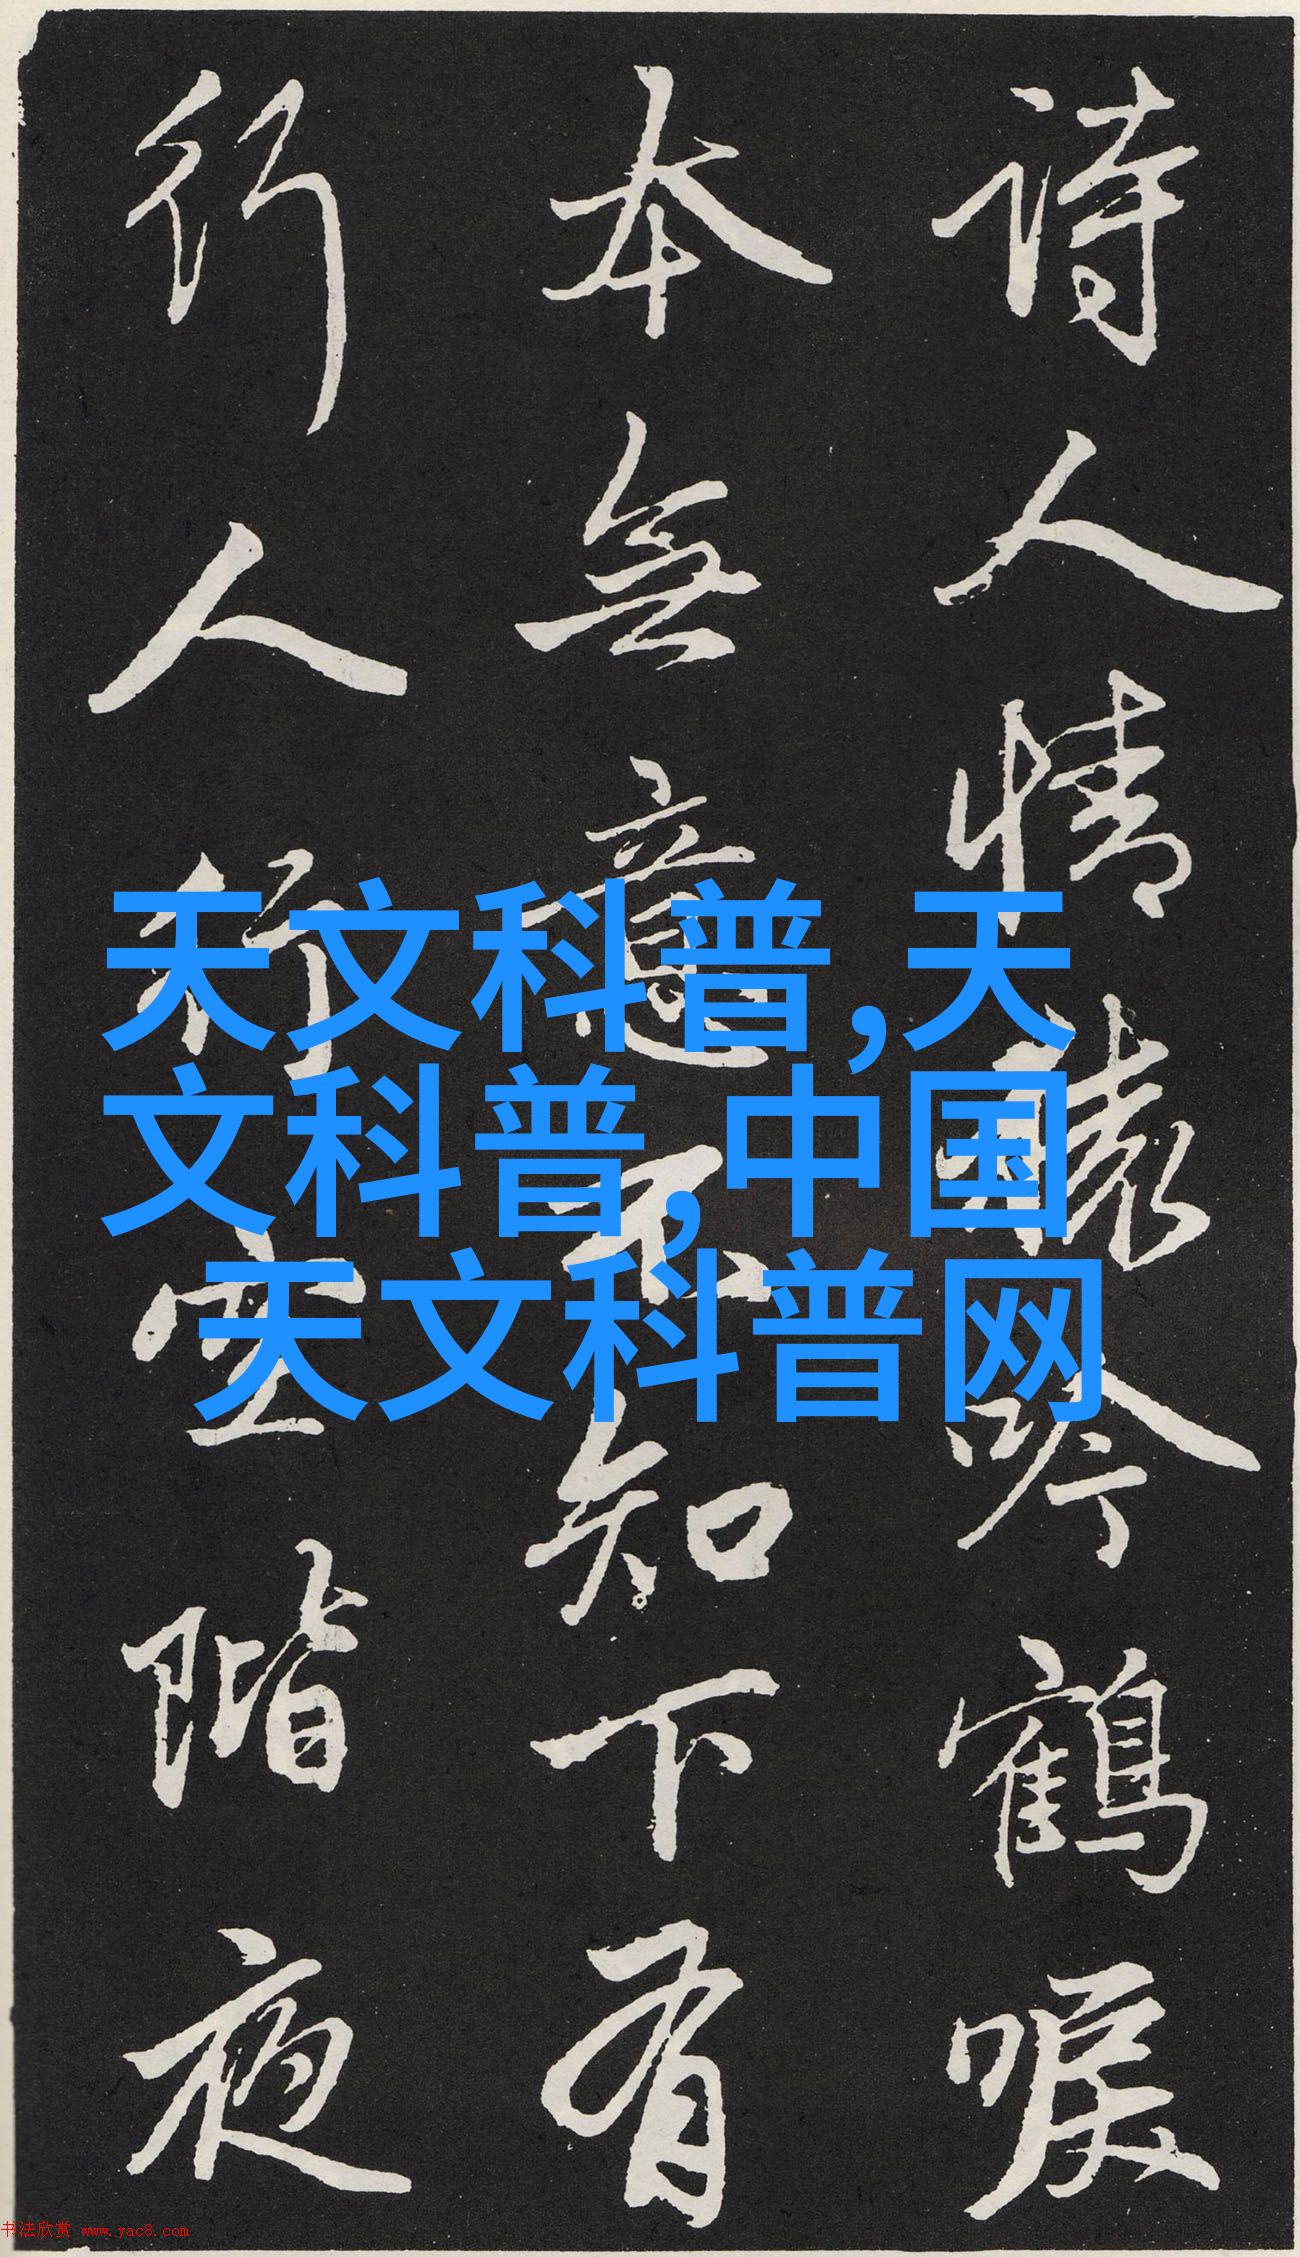 诗人情猿吟鹤唳
本无意不知下有
行人行空阶夜
天文科普,天
文科普,中国
天文科普网
书法欣赏 www.yac8.com